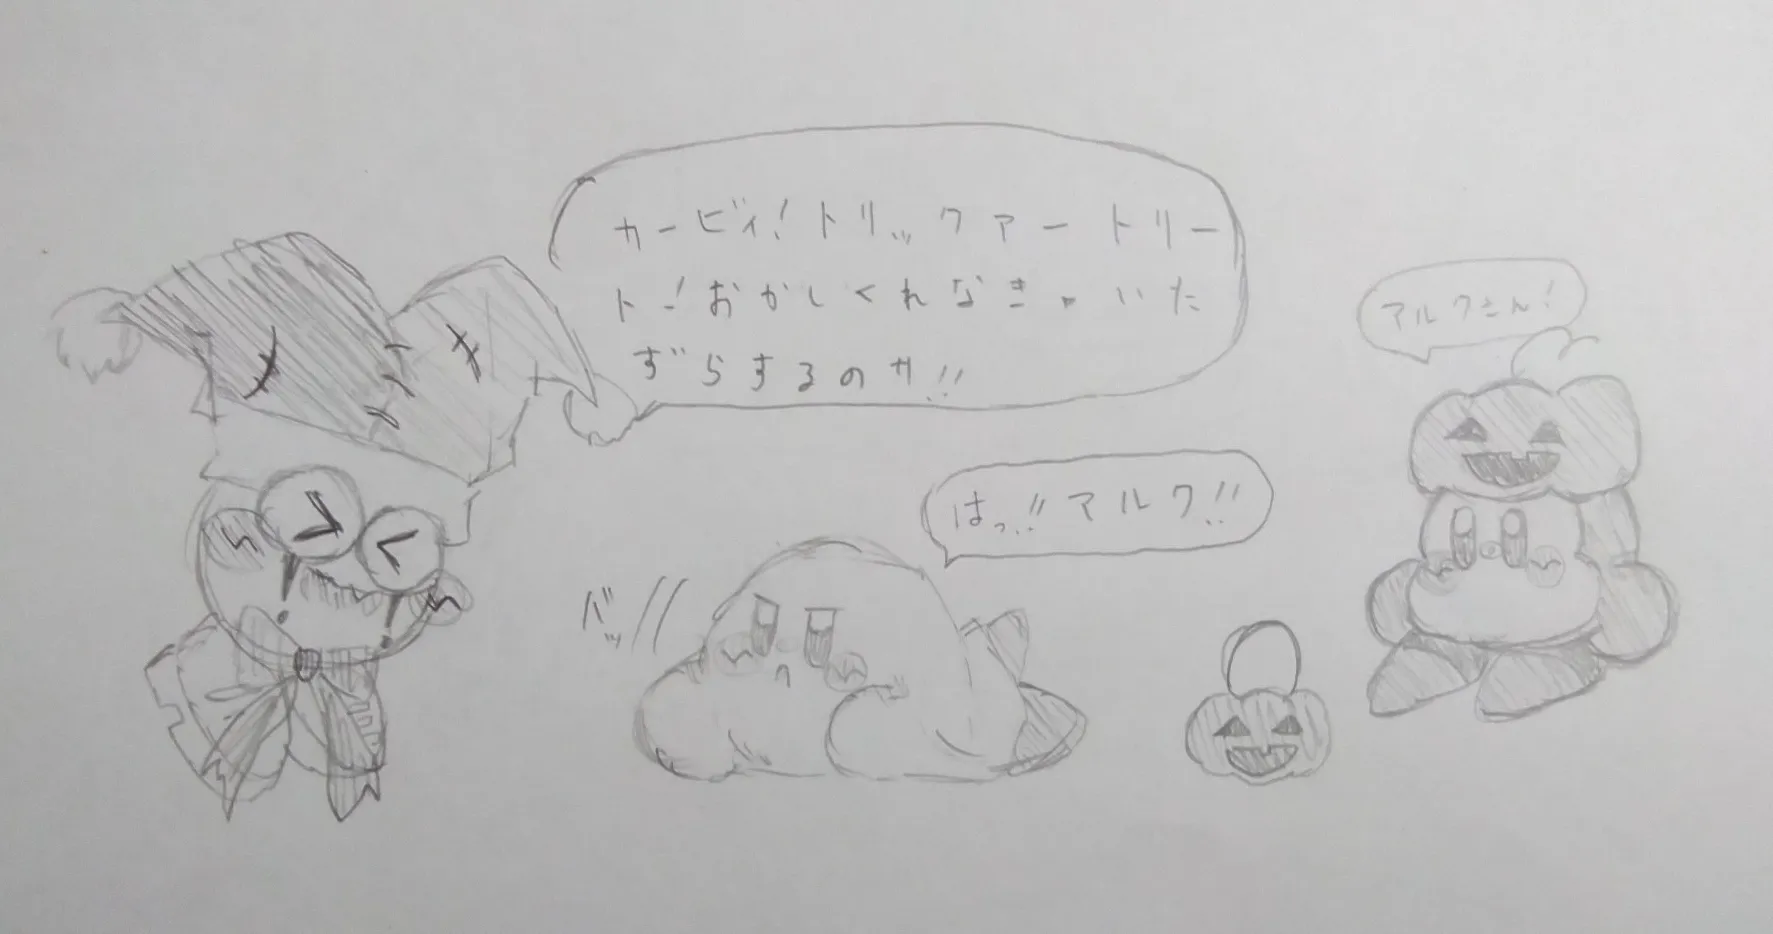 カービィ!トリックアートリー
ト!おかしくれなきゃいた
ずらするのサ!!
はっ!!マルク!!
マルクさん!
バッ